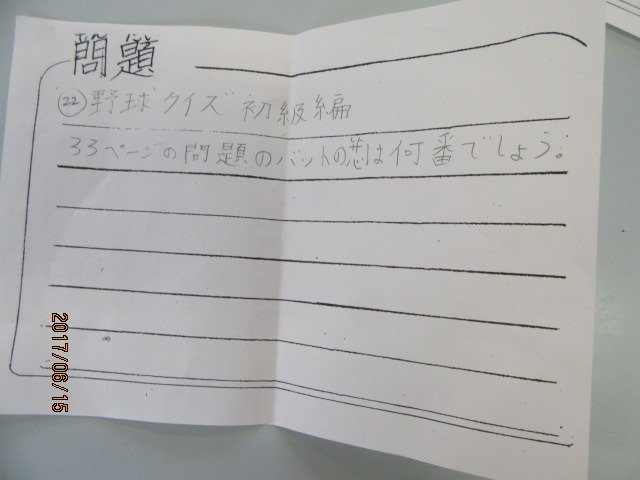 問題
㉒野球クイズ 初級編
33ページの問題のバットの芯は何番でしょう。
2017/06/15